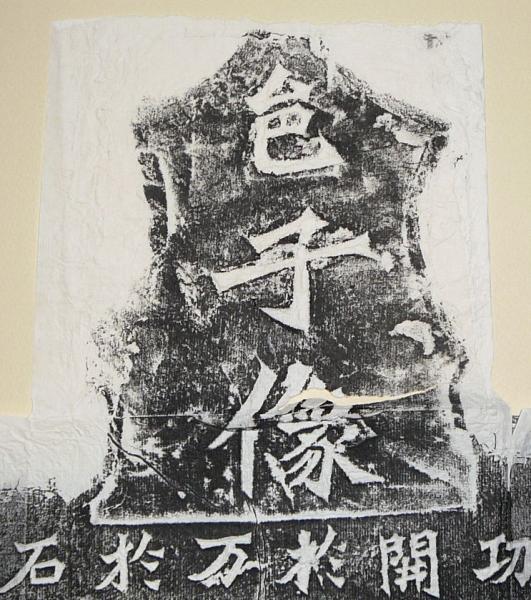 邑子像
功開於万於石